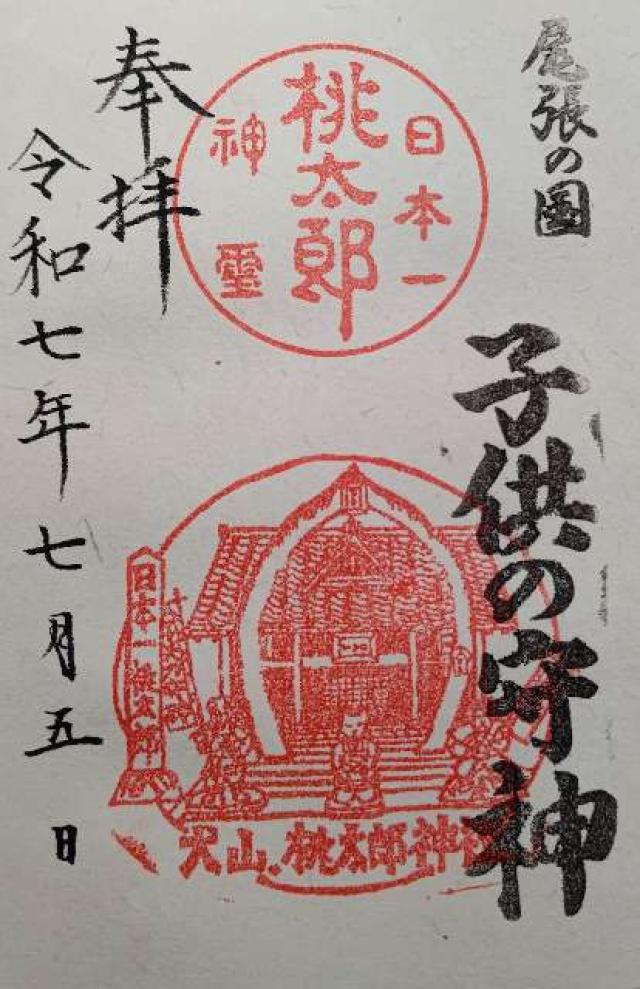 尾張の國
子供の守神
日本一
桃太郎
神靈
奉拝
令和七年七月五日
日本一桃太郎
犬山、桃太郎神社